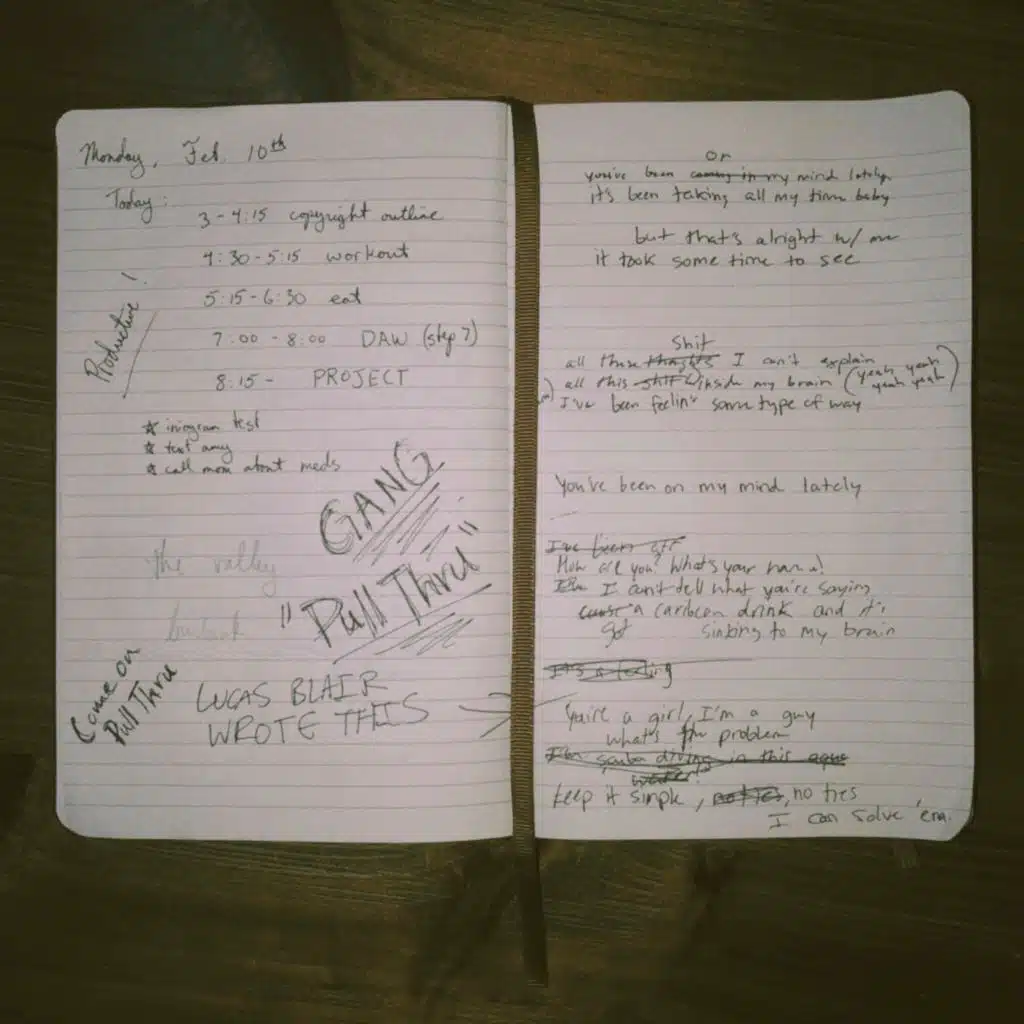 Monday, Feb. 10th
Today:
3-4:15 copyright outline
4:30-5:15 workout
5:15-6:30 eat
7:00-8:00 DAW (step 7)
8:15- PROJECT
Productive!
☆ test
☆ text amy
☆ call mom about meds
GANG
"Pull Thru"
the valley
Come on
Pull Thru
LUCAS BLAIR
WROTE THIS
on
you've been coming in my mind lately
it's been taking all my time baby
but that's alright w/ me
it took some time to see
shit
all these thoughts I can't explain
all this shit inside my brain (yeah yeah
yeah yeah)
I've been feelin' some type of way
You've been on my mind lately
I've been off
How are you? What's your name?
I'm I can't tell what you're saying
cause a caribean drink and it's
got sinking to my brain
It's a feeling
You're a girl, I'm a guy
what's the problem
I'm scuba diving in this aqua
water!
keep it simple, no ties, no ties
I can solve 'em.